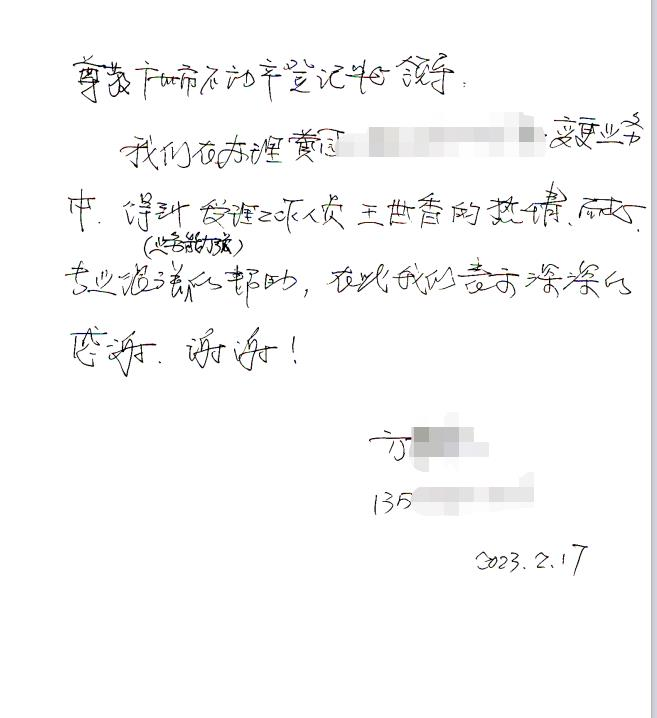 尊敬广州市不动产登记中心领导：
我们在办理黄 变更业务
中．得到受理工作人员王世香的热情、耐心、
（业务能力强）
专业 的帮助，在此我们表示深深的
感谢．谢谢！
方
135
2023.2.17